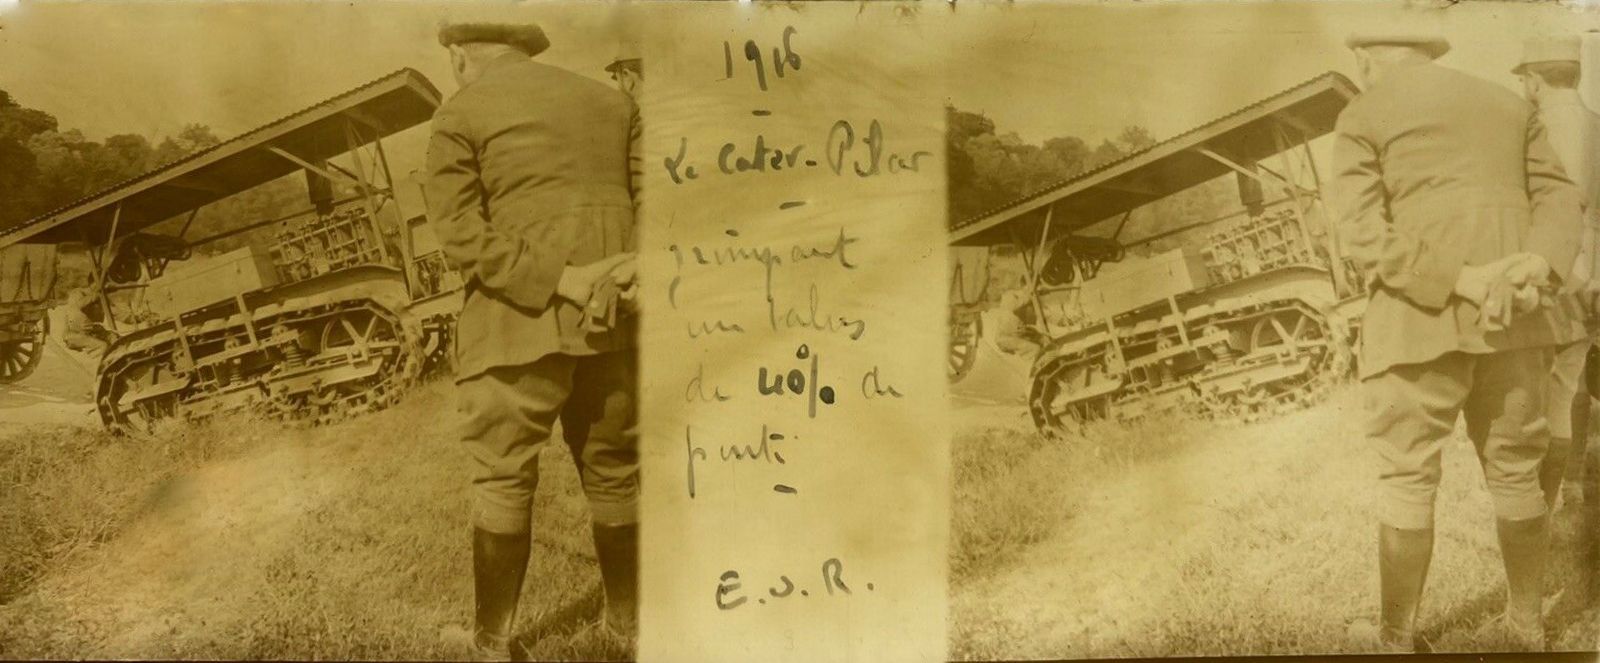 1916
-
Le Cater-Pilar
-
grimpant
un talus
de 40% de
pente
-
E.V.R.